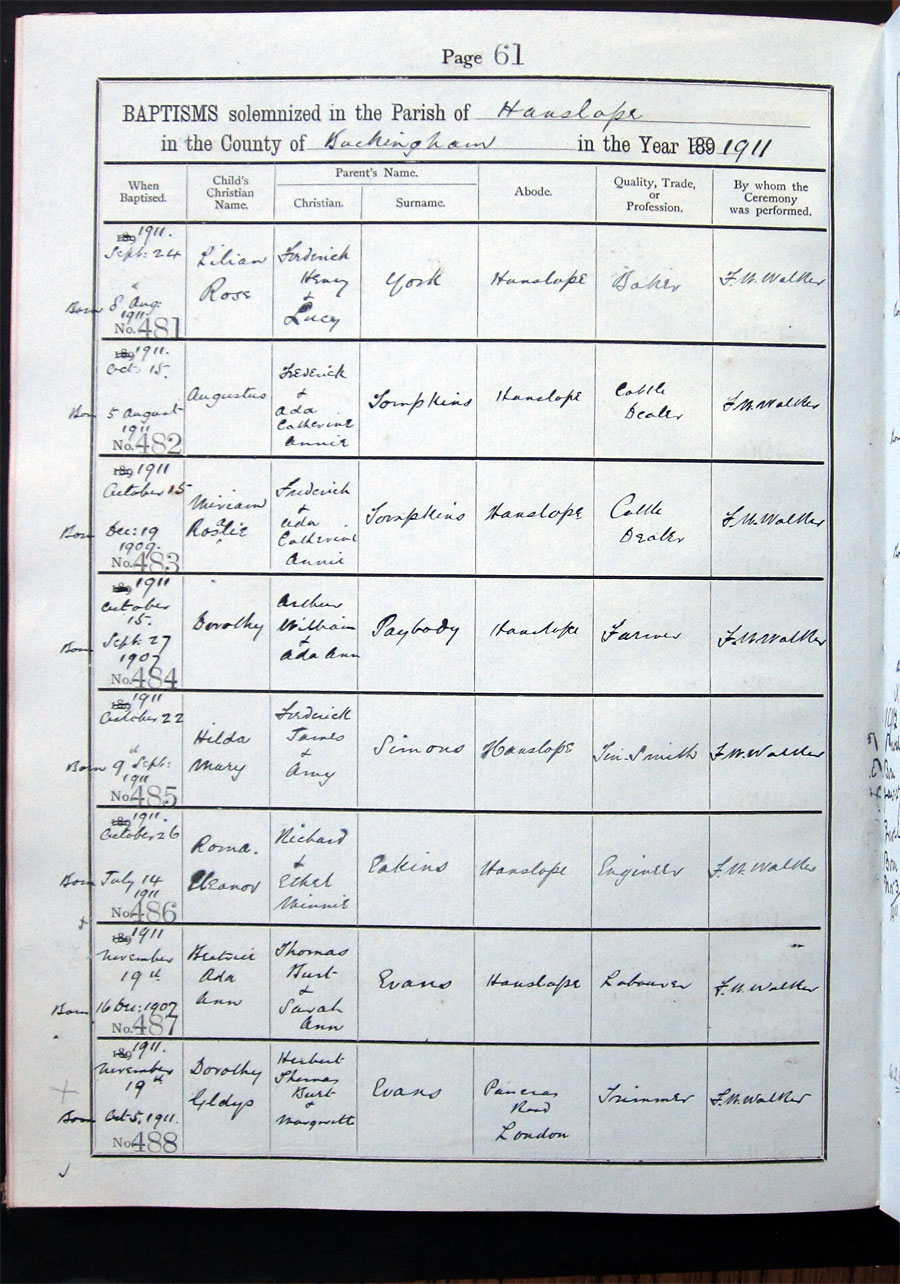 Page 61
BAPTISMS solemnized in the Parish of Hanslope
in the County of Buckingham in the Year 189 1911
When Baptised.
Child's Christian Name.
Parent's Name.
Christian.
Surname.
Abode.
Quality, Trade, or Profession.
By whom the Ceremony was performed.
189 1911.
Sept: 24
Born 8 Aug:
1911
No. 481
Lilian
Rose
Frederick
Henry
&
Lucy
York
Hanslope
Baker
F. W. Walker
189 1911.
Oct: 15.
Born 5 August
1911
No. 482
Augustus
Frederick
&
Ada
Catherine
Annie
Tompkins
Hanslope
Cattle
Dealer
F. W. Walker
189 1911
October 15
Born Dec: 19
1909.
No. 483
Miriam
Frederick
&
Ada
Catherine
Annie
Tompkins
Hanslope
Cattle
Dealer
F. W. Walker
189 1911
October
15.
Born Sept: 27
1907
No. 484
Dorothy
Arthur
William
&
Ada Ann
Paybody
Hanslope
Farmer
F. W. Walker
189 1911
October 22
Born 9 Sept:
1911
No. 485
Hilda
Mary
Frederick
James
&
Amy
Simons
Hanslope
Tin-Smith
F. W. Walker
189 1911.
October 26
Born July 14
1911
No. 486
Roma.
Eleanor
Richard
&
Ethel
Minnie
Eakins
Hanslope
Engineer
F. W. Walker
189 1911
November
19th
Born 16 Dec: 1907
No. 487
Beatrice
Ada
Ann
Thomas
Burt
&
Sarah
Ann
Evans
Hanslope
Labourer
F. W. Walker
189 1911.
November
19th
Born Oct 5, 1911.
No. 488
Dorothy
Gladys
Herbert
Thomas
Burt
&
Margaret
Evans
Pancras
Road
London
Trimmer
F. W. Walker